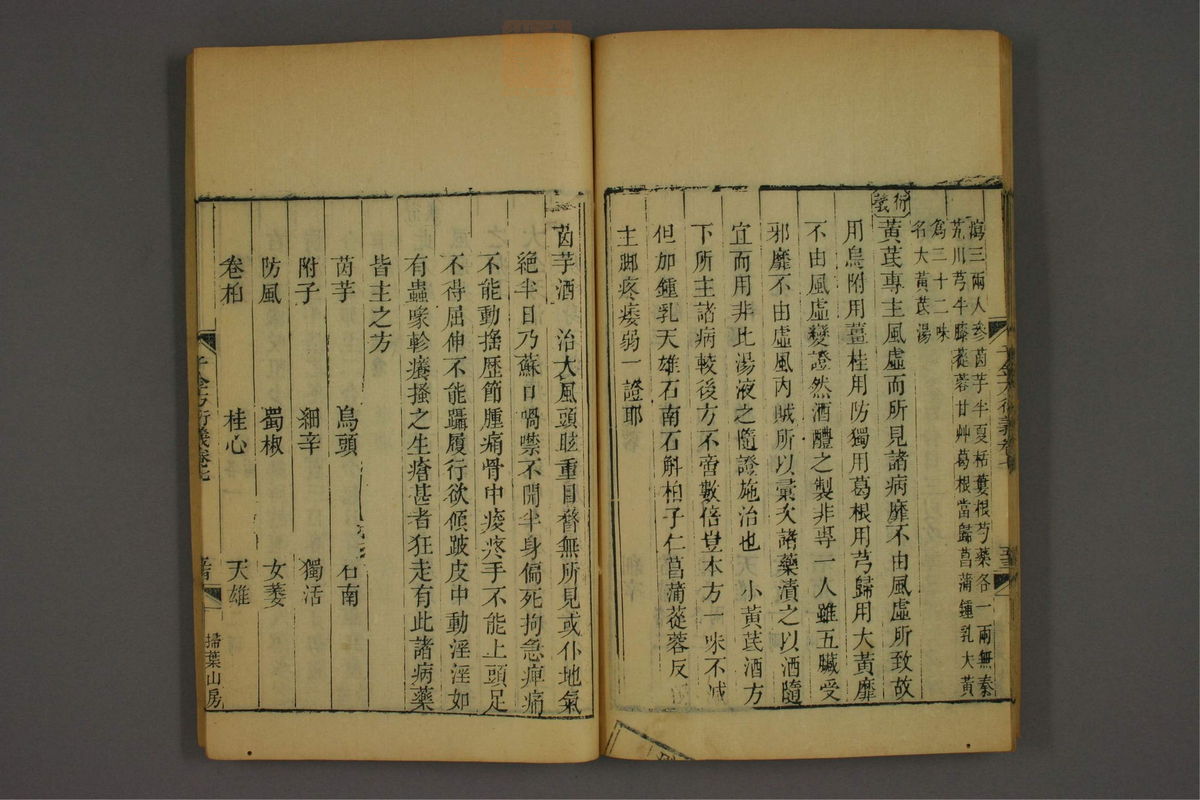 瀉三兩人參茵芋半夏栝蔞根芍藥各一兩無秦
艽川芎牛膝蓯蓉甘艸葛根當歸菖蒲鍾乳大黃
為二十二味
名大黃芪湯
衍義
黃芪專主風虛而所見諸病靡不由風虛所致故
用烏附用薑桂用防獨用葛根用芎歸用大黃靡
不由風虛變證然酒醴之製非專一人雖五臟受
邪靡不由虛風內賊所以彙次諸藥漬之以酒隨
宜而用非比湯液之隨證施治也 小黃芪酒方
下所主諸病較後方不啻數倍豈本方一味不減
但加鍾乳天雄石南石斛柏子仁菖蒲蓯蓉反
主腳疼痿弱一證耶
茵芋酒 治大風頭眩重目瞀無所見或仆地氣
絕半日乃蘇口喎噤不開半身偏死拘急痺痛
不能動搖歷節腫痛骨中痠疼手不能上頭足
不得屈伸不能躡履行欲傾跛皮中動淫淫如
有蟲喙軫癢搔之生瘡甚者狂走有此諸病藥
皆主之方
茵芋 烏頭 石南
附子 細辛 獨活
防風 蜀椒 女萎
卷柏 桂心 天雄
千金方衍義卷七
掃葉山房